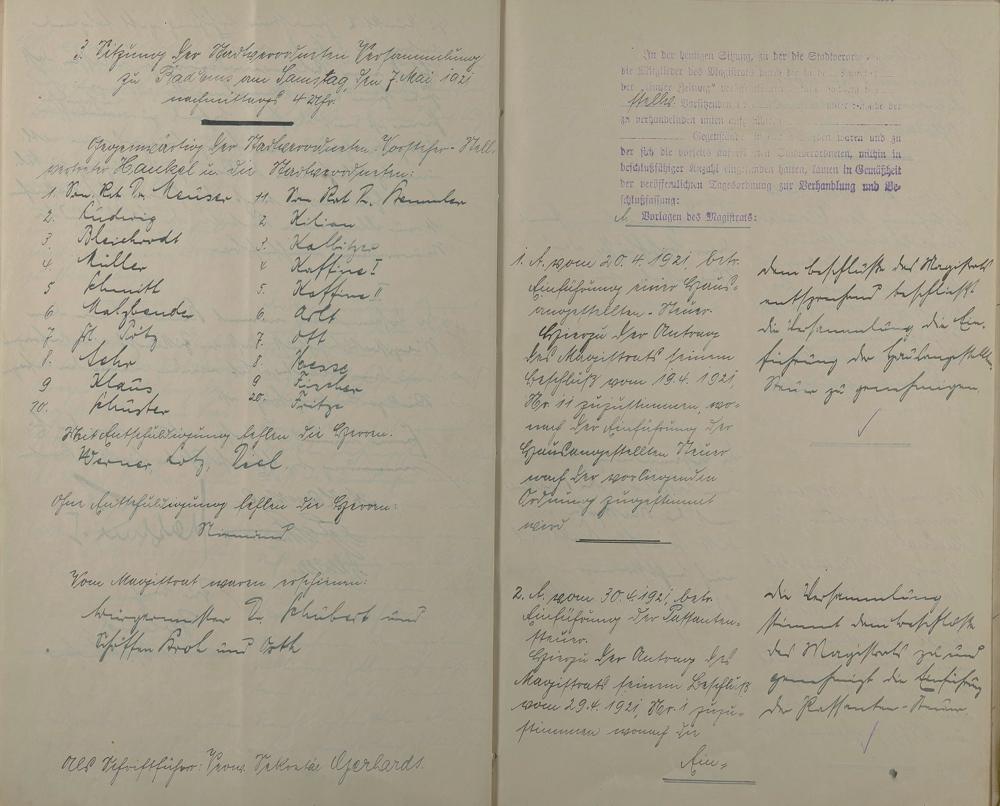 3. Sitzung der Stadtverordneten Versammlung
zu Bad Ems am Samstag, den 7 Mai 1921
nachmittags 4 Uhr.
Gegenwärtig der Stadtverordneten-Vorsteher-Stell-
vertreter Hankel u. die Stadtverordneten:
1. San. Rat Dr. Reuser
2. Ludwig
3. Bleichrodt
4 Müller
5 Schmitt
6 Malzbender
7
8.
9 Klaus
10. Schuster
11. San Rat Dr. Stemmler
2 Kilian
3. Kalbitzer
4 Kaffine I
5. Kaffine II
6. Arlt
7. Ott
8. Hesse
9 Fischer
20. Fritze
Mit Entschuldigung fehlen die Herren:
Werner, Lotz, Diel.
Ohne Entschuldigung fehlen die Herren:
Niemand
Vom Magistrat waren erschienen:
Bürgermeister Dr. Schubert und
Schöffen Kroh und Orth
Als Schriftführer: Verw. Sekretär Gerhardt
In der heutigen Sitzung, zu der die Stadtverord
die Mitglieder des Magistrats durch
der "Emser Zeitung"
stellv. Vorsitzenden unter Angabe der
zu verhandelnden
Gegenstände waren und zu
der sich die vorseits aufgeführten Stadtverordneten, mithin in
beschlußfähiger Anzahl eingefunden hatten, kamen in Gemäßheit
der veröffentlichten Tagesordnung zur Verhandlung und Be-
schlußfassung:
A. Vorlagen des Magistrats:
1. A. vom 20.4.1921 betr.
Einführung einer Haus-
angestellten-Steuer.
Hierzu der Antrag
des Magistrats seinem
Beschluß vom 19.4.1921,
Nr. 11 zuzustimmen, wo-
nach der Einführung der
Hausangestellten Steuer
nach der vorliegenden
Ordnung zugestimmt
wird
Dem Beschlusse des Magistrats
entsprechend beschließt
die Versammlung die Ein-
führung der Hausangestellten
Steuer zu genehmigen
2. A. vom 30.4.1921, betr.
Einführung der Passanten-
steuer.
Hierzu der Antrag des
Magistrats seinem Beschluß
vom 29.4.1921, Nr. 1 zuzu-
stimmen wonach die
Ein-
Die Versammlung
stimmt dem Beschlusse
des Magistrats zu und
genehmigt die Einführung
der Passanten-Steuer